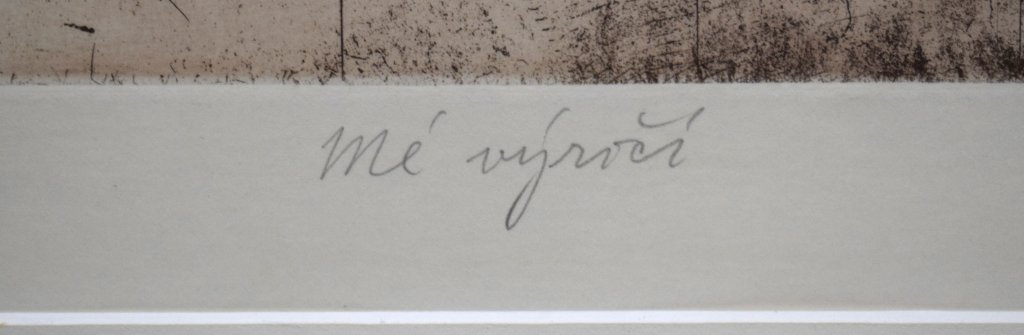 Mé výročí